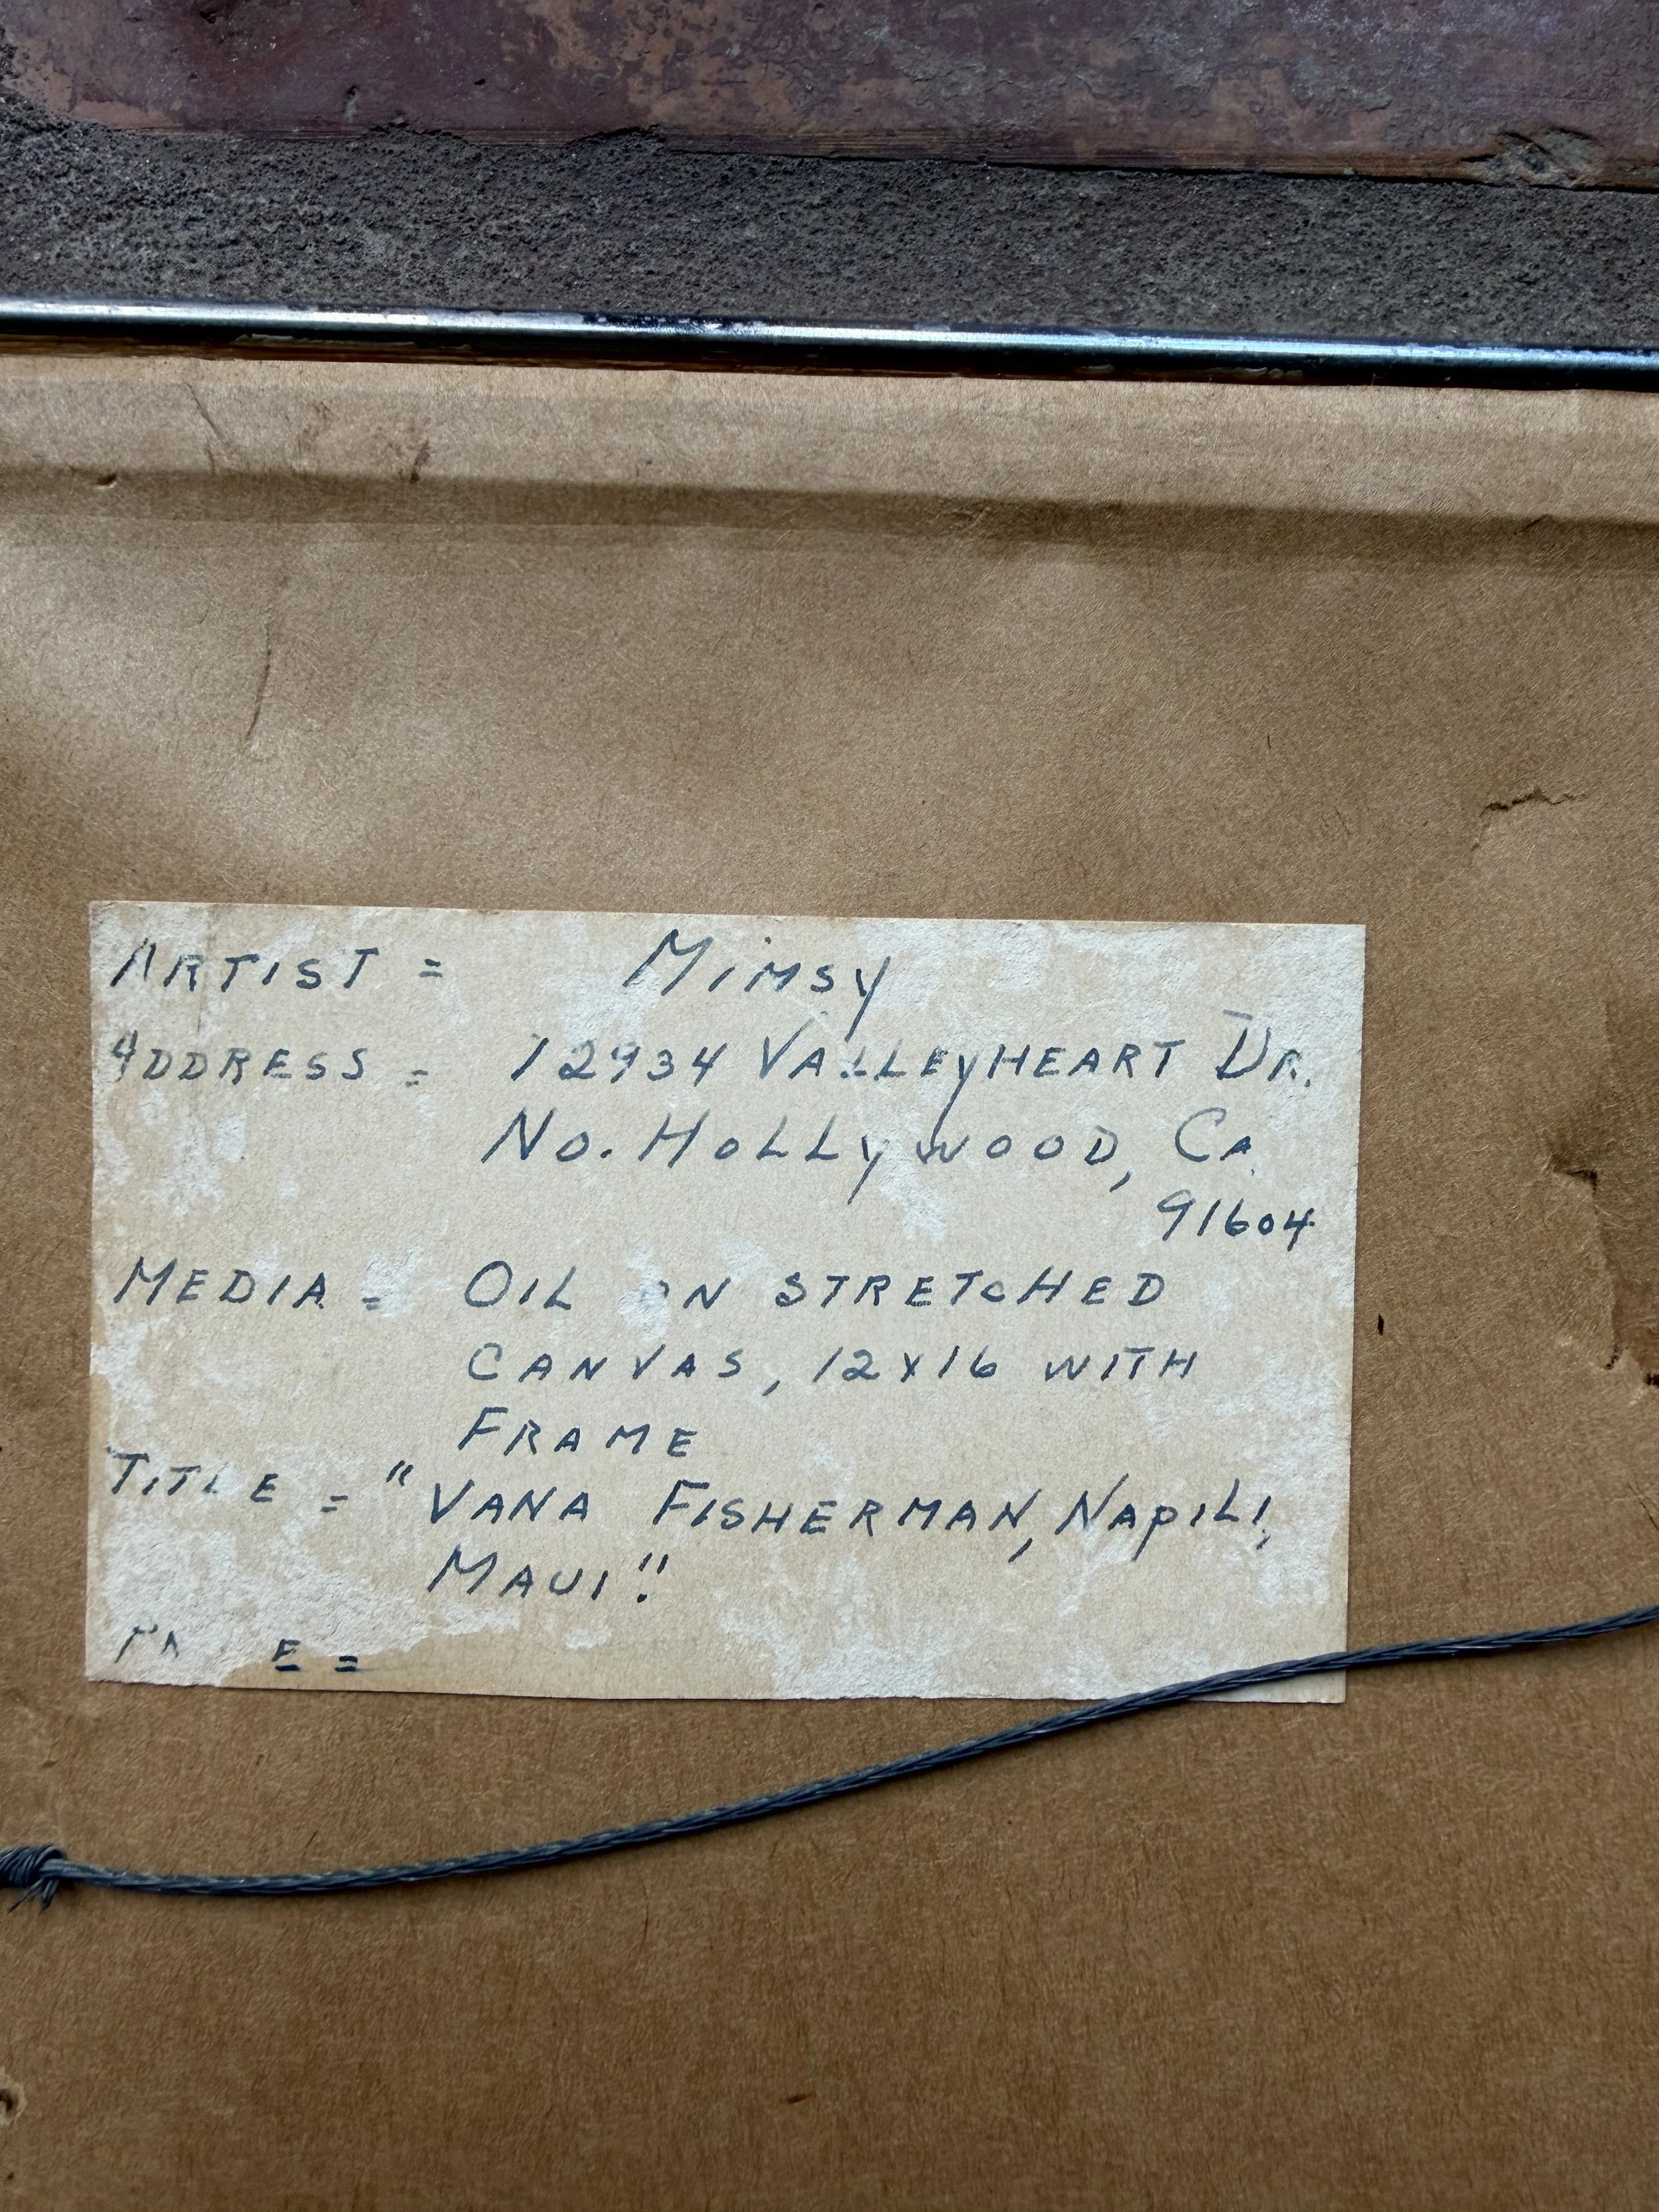 ARTIST = Mimsy
ADDRESS = 12934 VALLEYHEART DR.
No. HOLLYWOOD, CA
91604
MEDIA = OIL ON STRETCHED
CANVAS, 12x16 WITH
FRAME
TITLE = "VANA FISHERMAN, NAPILI,
MAUI".